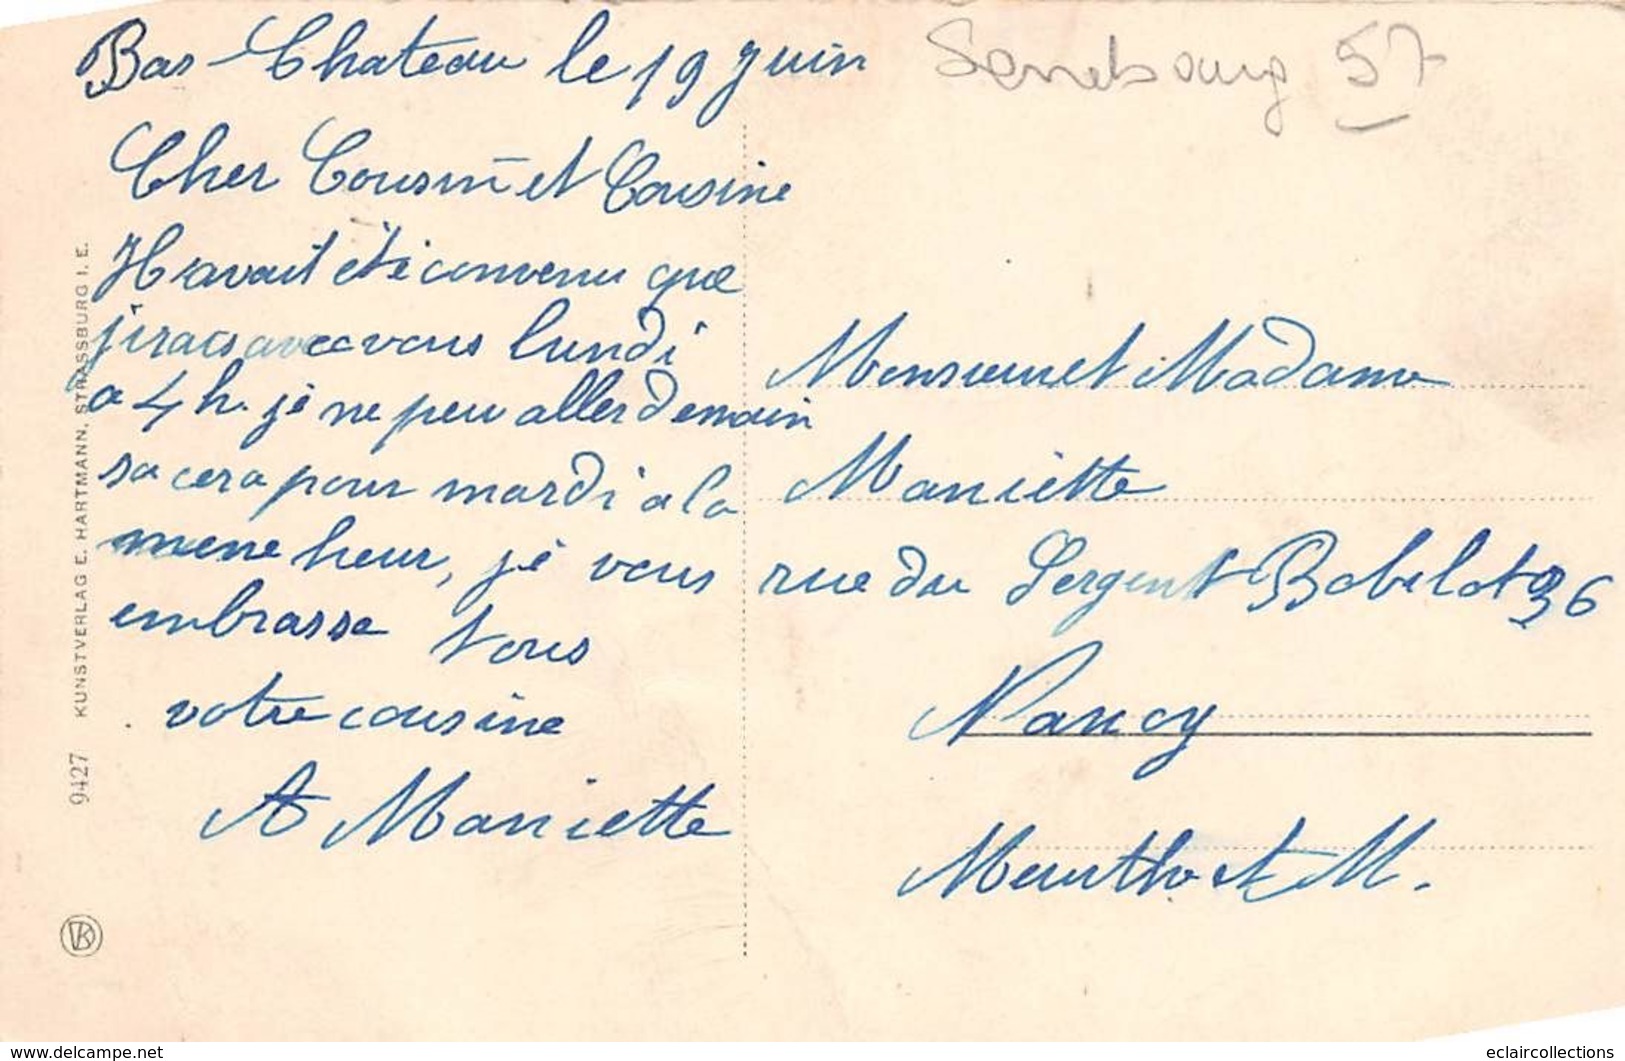 Bas-Chateau le 19 juin
Cher Cousin et Cousine
Il avait été convenu que
jirais avec vous lundi
a 4 h. je ne peu aller demain
sa cera pour mardi a la
mene heur, je vous
embrasse tous
votre cousine
A Mariette
Sarrebourg 57
Monsieur et Madame
Mariette
rue du Sergent Bobilot 36
Nancy
Meurthe et M.
9427 KUNSTVERLAG E. HARTMANN, STRASSBURG I. E.
www.delcampe.net
eclaircollections